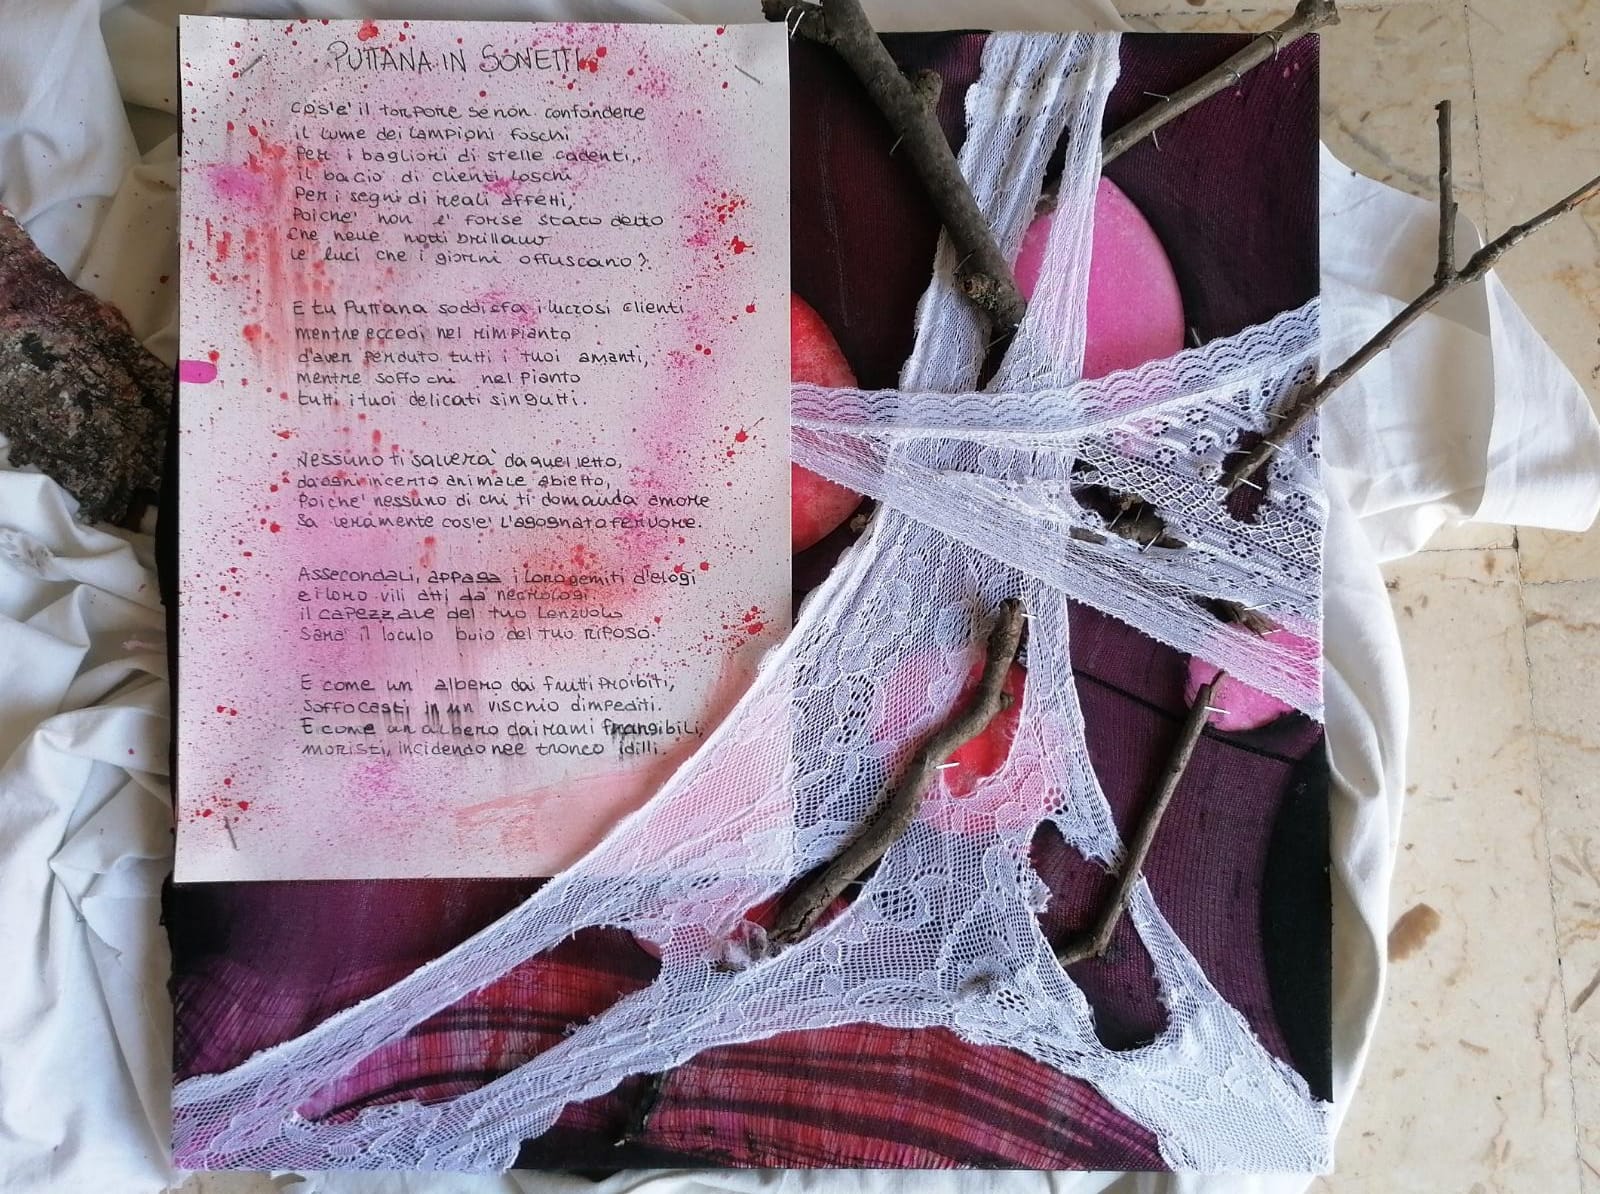 PUTTANA IN SONETTI
Cos'e' il torpore se non confondere
il lume dei lampioni foschi
Per i bagliori di stelle cadenti,
il bacio di clienti loschi
Per i segni di reali affetti,
Poiche' non e' forse stato detto
Che nelle notti brillano
le luci che i giorni offuscano?
E tu Puttana soddisfa i lucrosi clienti
mentre eccedi nel rimpianto
d'aver perduto tutti i tuoi amanti,
mentre soffochi nel pianto
tutti i tuoi delicati singulti.
Nessuno ti salvera' da quel letto,
da ogni incerto animale abietto,
Poiche' nessuno di chi ti domanda amore
Sa veramente cos'e' l'agognato fervore.
Assecondali, appaga i loro gemiti d'elogi
e i loro vili atti da necrologi.
il capezzale del tuo lenzuolo
Sara' il loculo buio del tuo riposo.
E come un albero dai frutti proibiti,
Soffocasti in un vischio d'impediti.
E come un albero dai rami frangibili,
moristi, incidendo nel tronco idilli.